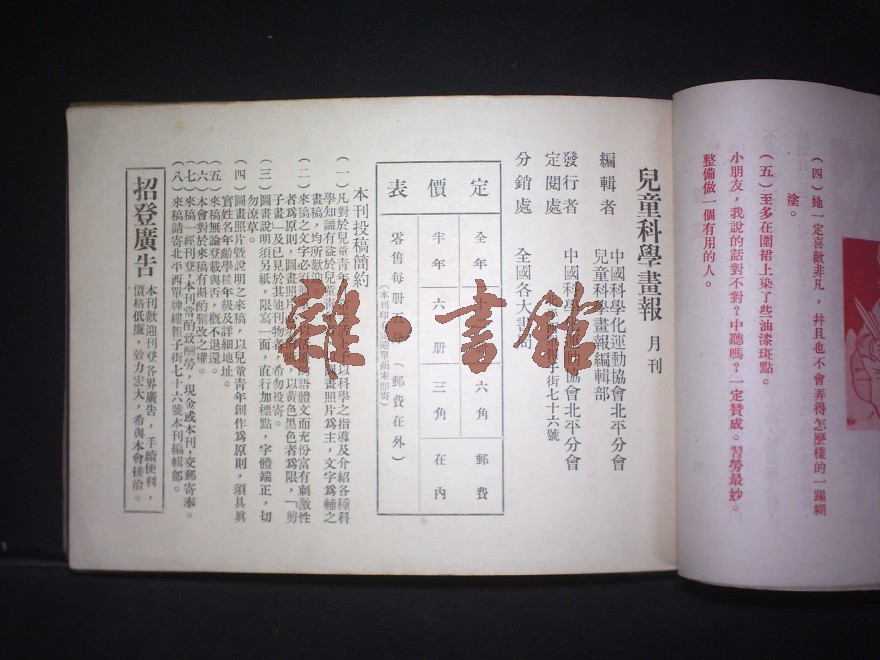 (四)她一定喜歡非凡,幷且也不會弄得怎麼樣的一蹋糊
塗。
(五)至多在圍裙上染了些油漆斑點。
小朋友,我說的話對不對?中聽嗎?一定賛成。習勞最妙。
整備做一個有用的人。
兒童科學畫報 月刊
編輯者
中國科學化運動協會北平分會
兒童科學畫報編輯部
發行者 中國科學 協會北平分會
定閱處 子街七十六號
分銷處 全國各大書局
定價表
全年 六角 郵費
半年 六册 三角 在內
零售每册五分(郵費在外)
本刊投稿簡約
(一)凡對於兒童青年 以科學之指導及介紹各種科
學知識有益於兒童 圖畫照片爲主,文字爲輔之
畫稿,均所歡迎。
(二)來稿之文字必須 語體文而充份富有刺激性
者爲原則,圖畫照片 以黃色黑色者爲限,「剪
子畫」及已見於其他刊物者,希勿投寄。
(三)圖畫說明須另紙,限寫一面,直行加標點,字體端正,切
勿潦草。
(四)圖畫照片暨說明之來稿,以兒童青年創作爲原則,須具眞
實姓名年齡學校年級及詳細地址。
(五)來稿無論登載與否,槪不退還。
(六)本會對於來稿有斟酌刪改之權。
(七)來稿一經刊登,本刊當酌致酬勞,現金或本刊,交郵寄奉。
(八)來稿請寄北平西單 子街七十六號本刊編輯部。
招登廣告
本刊歡迎刊登各界廣告,手續便利,
價格低廉,效力宏大,希與本會接洽。
雜·書館